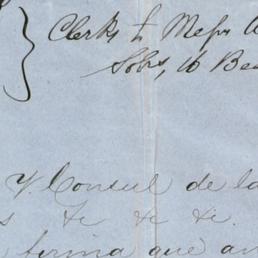 Clerks to Messrs
Sols, 16 Bea
Y. Consul de la
s &c &c &c.
firma que an